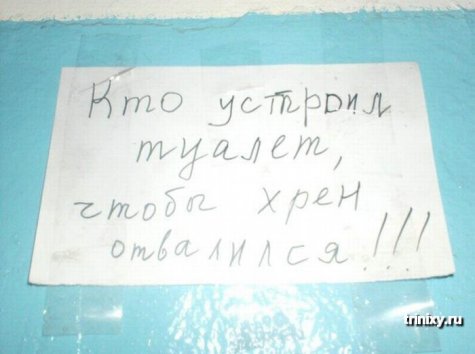 Кто устроил
туалет,
чтобы хрен
отвалился!!!
trinixy.ru